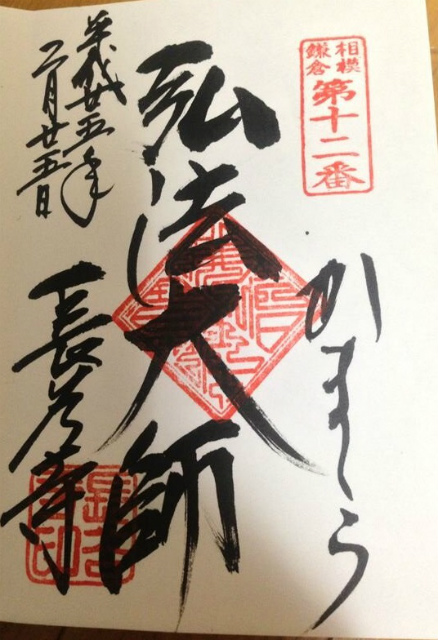 相模
鎌倉
第十二番
かまくら
弘法大師
平成廿五年
二月廿五日
長谷寺